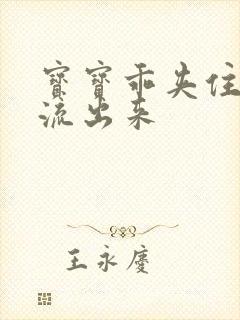 寶寶乖夹住
流出来
王永慶